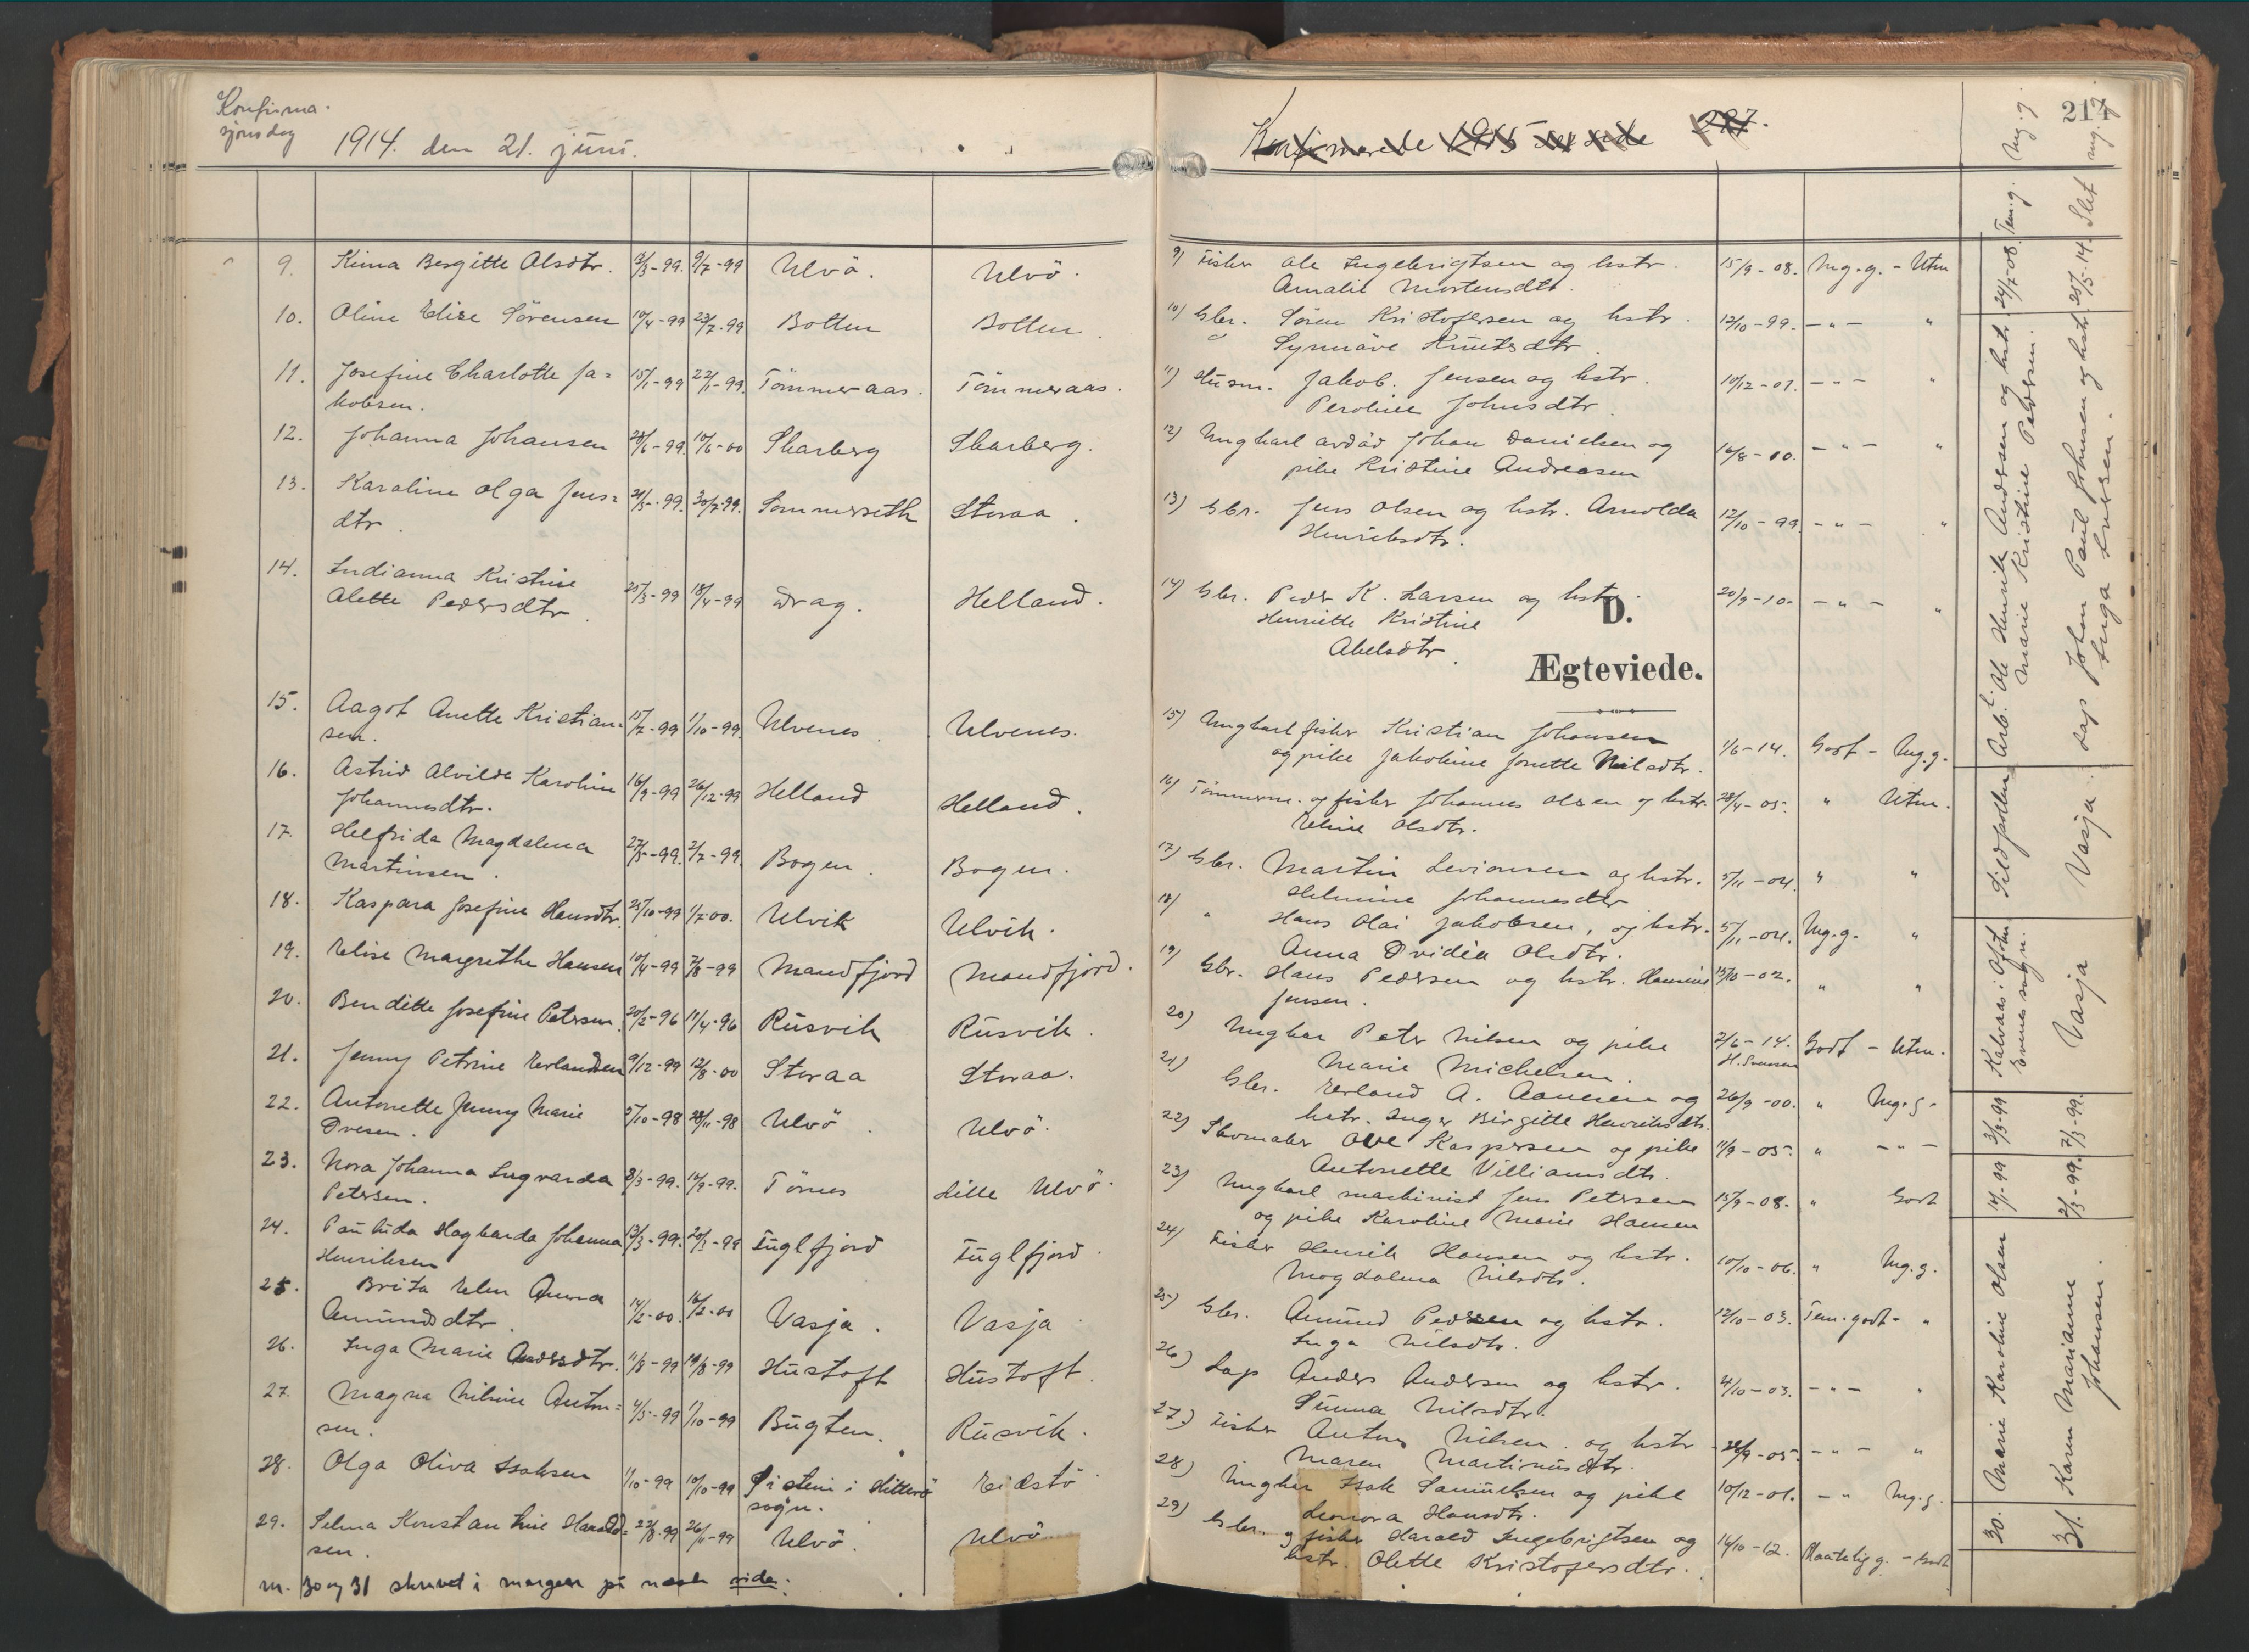 Konfirma-
sjonsdag
1914. den 21. juni.
9. Kima Bergitte Olsdtr. 3/3-99. 9/7-99 Ulvö. Ulvö.
10. Oline Elise Sörensen 10/4-99 23/7-99 Botten Botten.
11. Josefine Charlotte Ja=
kobsen. 15/1-99 22/1-99. Tömmeraas. Tömmeraas.
12. Johanna Johansen 28/6-99. 10/6-00 Skarberg Skarberg.
13. Karoline Olga Jens=
dtr. 21/5-99. 30/7-99. Sommerseth Storaa.
14. Indianna Kristine
Alette Pedersdtr. 25/3-99 18/4-99 Drag. Helland.
15. Aagot Anette Kristian=
sen. 15/7-99 1/10-99. Ulvenes. Ulvenes.
16. Astrid Alvilde Karoline
Johannesdtr. 16/9-99 26/12-99 Helland Helland.
17. Helfrida Magdalena
Martinsen. 27/5-99. 2/7-99. Bogen. Bogen.
18. Kaspara Josefine Hansdtr. 25/10-99 1/7-00. Ulvik Ulvik.
19. Elise Margrethe Hansen 10/4-99 7/8-99 Mandfjord Mandfjord.
20. Benditte Josefine Petersen. 20/2-96 11/4-96 Rusvik Rusvik.
21. Jenny Petrine Erlandsen 9/12-99 12/8-00 Storaa Storaa.
22. Antonette Jenny Marie
Ovesen. 5/10-98 28/11-98 Ulvö. Ulvö.
23. Nora Johanna Ingvarda
Petersen. 8/3-99. 16/9-99. Tömes Lille Ulvö.
24. Paulida Hagbarda Johanna
Henriksen 13/3-99. 20/3-99 Fuglfjord Fuglfjord.
25. Brita Elen Anna
Amundsdtr. 14/2-00. 16/2-00 Vasja. Vasja.
26. Inga Marie Andersdtr. 11/8-99 19/8-99 Hustoft Hustoft.
27. Magna Nilsine Anton=
sen. 4/5-99 1/10-99 Bugten. Rusvik.
28. Olga Oliva Isaksen 1/10-99 10/10-99 i Hitterö
sogn. Eidstö
29. Selma Konstantine Harald=
sen. 22/8-99 26/11-99 Ulvö. Ulvö.
nr. 30 og 31 skrevet i margen på neste side.
Konfirmerede 1915 se side 227.
217
9) Fisker Ole Ingebrigtsen og hstr. 15/9-08. Mg.g. - Utm
Amalie Mortensdtr.
10) Gbr. Sören Kristofersen og hstr. 12/10-99. - " - "
Synnöve Knutsdtr.
11) Husm. Jakob. Jensen og hstr. 10/12-01. - " - "
Peroline Johnsdtr.
12) Ungkarl avdöd Johan Danielsen og 16/8-00. - " - "
pike Kristine Andreasen
13) Gbr. Jens Olsen og hstr. Arnolda 12/10-99. - " - "
Henriksdtr.
14) Gbr. Peder K. Larsen og hstr. 20/9-10. - " - "
Henriette Kristine
Abelsdtr.
D.
Ægteviede.
15) Ungkarl fisker Kristian Johansen
og pike Jakobine Jonette Nilsdtr. 1/6-14. Godt - Mg.g.
16) Tömmerm. og fisker Johannes Olsen og hstr. 28/4-05. " Utm.
Eline Olsdtr.
17) Gbr. Martin Levionsen og hstr. 5/11-04. " "
Helmine Johannesdtr
18) " Hans Olai Jakobsen, og hstr. 5/11-04. Mg.g. "
Anna Ovidia Olsdtr.
19) Gbr. Hans Pedersen og hstr. Hansine 15/10-02. " "
Jensen.
20) Ungkar Peter Nilsen og pike 2/6-14. Godt - Utm.
Marie Michelsen. H. Svensen
21) Gbr. Erland A. Aanesen og 26/9-00. " Mg.g.
hstr. Inger Birgitte Henriksdtr.
22) Skomaker Ove Kaspersen og pike 11/9-05. " - " -
Antonette Villiamsdtr.
23) Ungkarl maskinist Jens Petersen 15/9-08. " Godt
og pike Karoline Marie Hansen
24) Fisker Henrik Hansen og hstr. 10/10-06. " Mg.g.
Magdalena Nilsdtr.
25) Gbr. Amund Pedersen og hstr. 12/10-03. Tem. godt - "
Inga Nilsdtr.
26) Lap Anders Andersen og hstr. 4/10-03. - " - "
Sunna Nilsdtr.
27.) Fisker Anton Nilsen og hstr 28/9-05. - " - "
Maren Martinusdtr.
28) Ungkar Isak Samuelsen og pike 10/12-01. - " Mg.g.
Leonora Hansdtr.
29) Gbr. og fisker Harald Ingebrigtsen og 14/10-12. Maatelig g. - Godt
hstr. Olette Kristofersdtr.
30. Marie Karoline Olsen 14/1-99 3/3-99 Kalvaas i Ofoten
Evenes sogn. Sildpollen Arb. Ole Henrik Andersen og hstr. 24/7-08. Tem.g. Mg.g
Marie Kristine Pedersen.
31. Karen Marianne
Johansen. 2/3-99. 7/3-99. Vasja Vasja. Lap Johan Paul Johnsen og hstr. 25/5-14. Slet mg.g
Inga Larsen.